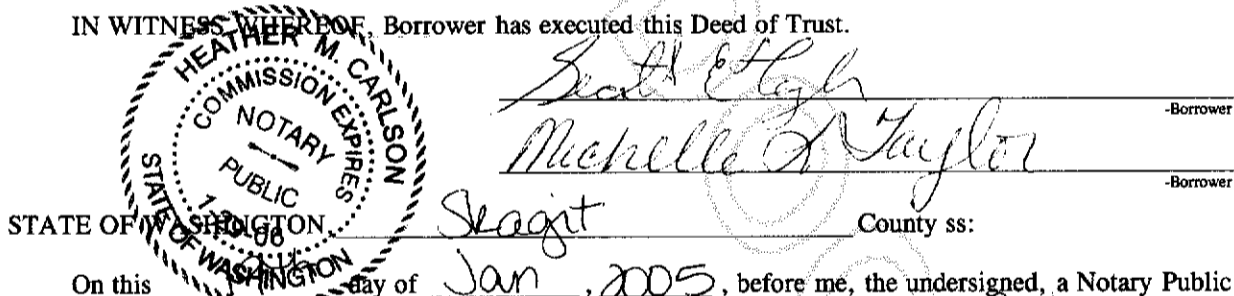 IN WITNESS WHEREOF, Borrower has executed this Deed of Trust.
HEATHER M. CARLSON
COMMISSION EXPIRES
NOTARY
PUBLIC
STATE OF WASHINGTON
Scott E
-Borrower
Michelle L Taylor
-Borrower
STATE OF WASHINGTON, Skagit County ss:
On this day of Jan, 2005, before me, the undersigned, a Notary Public